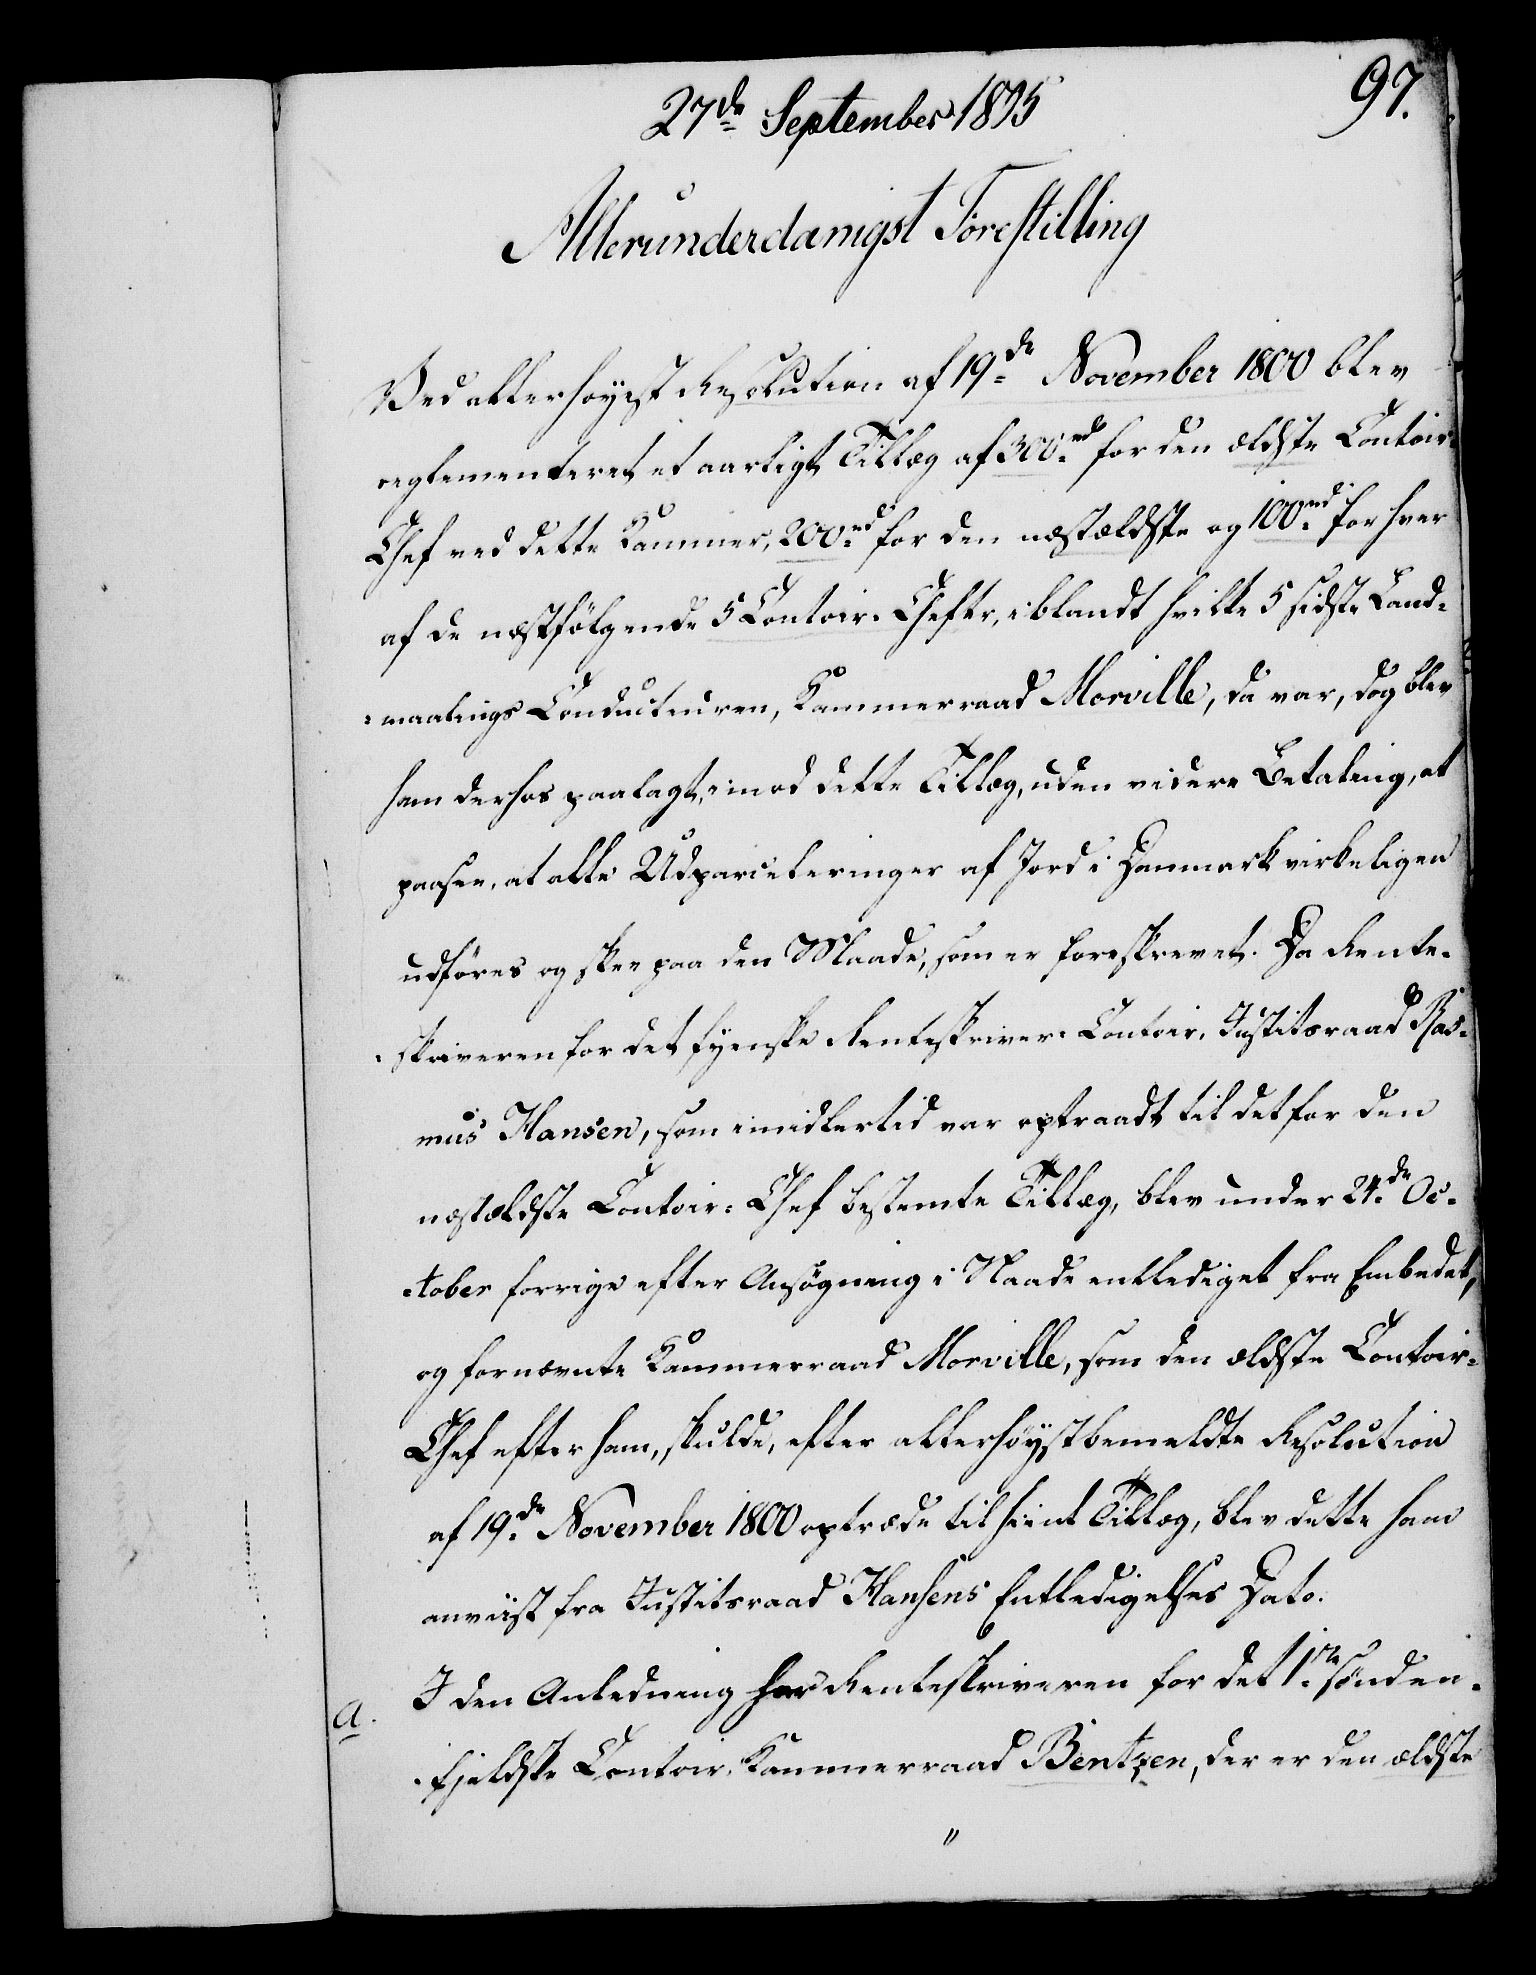 97.
27de September 1805
Allerunderdanigst Forestilling
Ved allerhøyest Resolution af 19de November 1800 blev
reglementeret et aarligt Tillæg af 300rd for den ældste Contoir-
Chef ved dette Kammer, 200rd for den næstældste og 100rd for hver
af de næstfölgende 5 Contoir-Chefer, iblandt hvilke 5 sidste Land-
-maalings Conducteuren, Kammerraad Morville, da var, dog blev
ham derhos paalagt, imod dette Tillæg, uden videre Betaling, at
paasee, at alle Udparceleringer af Jord i Danmark virkeligen
udföres og skee paa den Maade, som er foreskrevet. Da Rente-
-skriveren for det fyenske Renteskriver-Contoir, Justitsraad Ras-
mus Hansen, som imidlertid var optraadt til det for den
næstældste Contoir-Chef bestemte Tillæg, blev under 24de Oc-
-tober forrige efter Ansögning i Naade entlediget fra Embedet,
og fornævnte Kammerraad Morville, som den ældste Contoir-
Chef efter ham, skulde, efter allerhöystbemeldte Resolution
af 19de November 1800 optræde til hiint Tillæg, blev dette ham
anviist fra Justitsraad Hansens Entledigelses Dato.
I den Anledning har Renteskriveren for det 1ste sönden-
a.
-fjeldske Contoir, Kammerraad Bentzen, der er den ældste
"